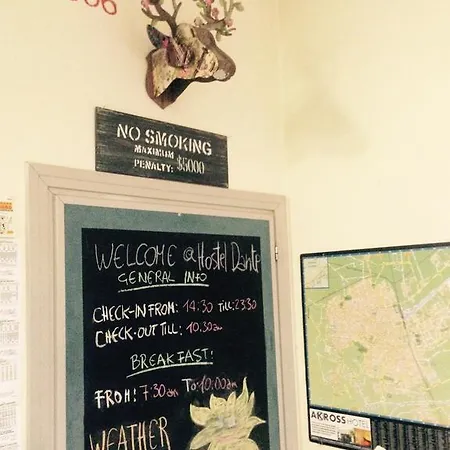 NO SMOKING
MAXIMUM
PENALTY: $5000
WELCOME @ Hostel Dante
GENERAL INFO
CHECK-IN FROM: 14:30 TILL: 23.30
CHECK-OUT TILL: 10.30am
BREAKFAST:
FROM: 7:30am TO: 10:00am
WEATHER
AKROSS HOTEL